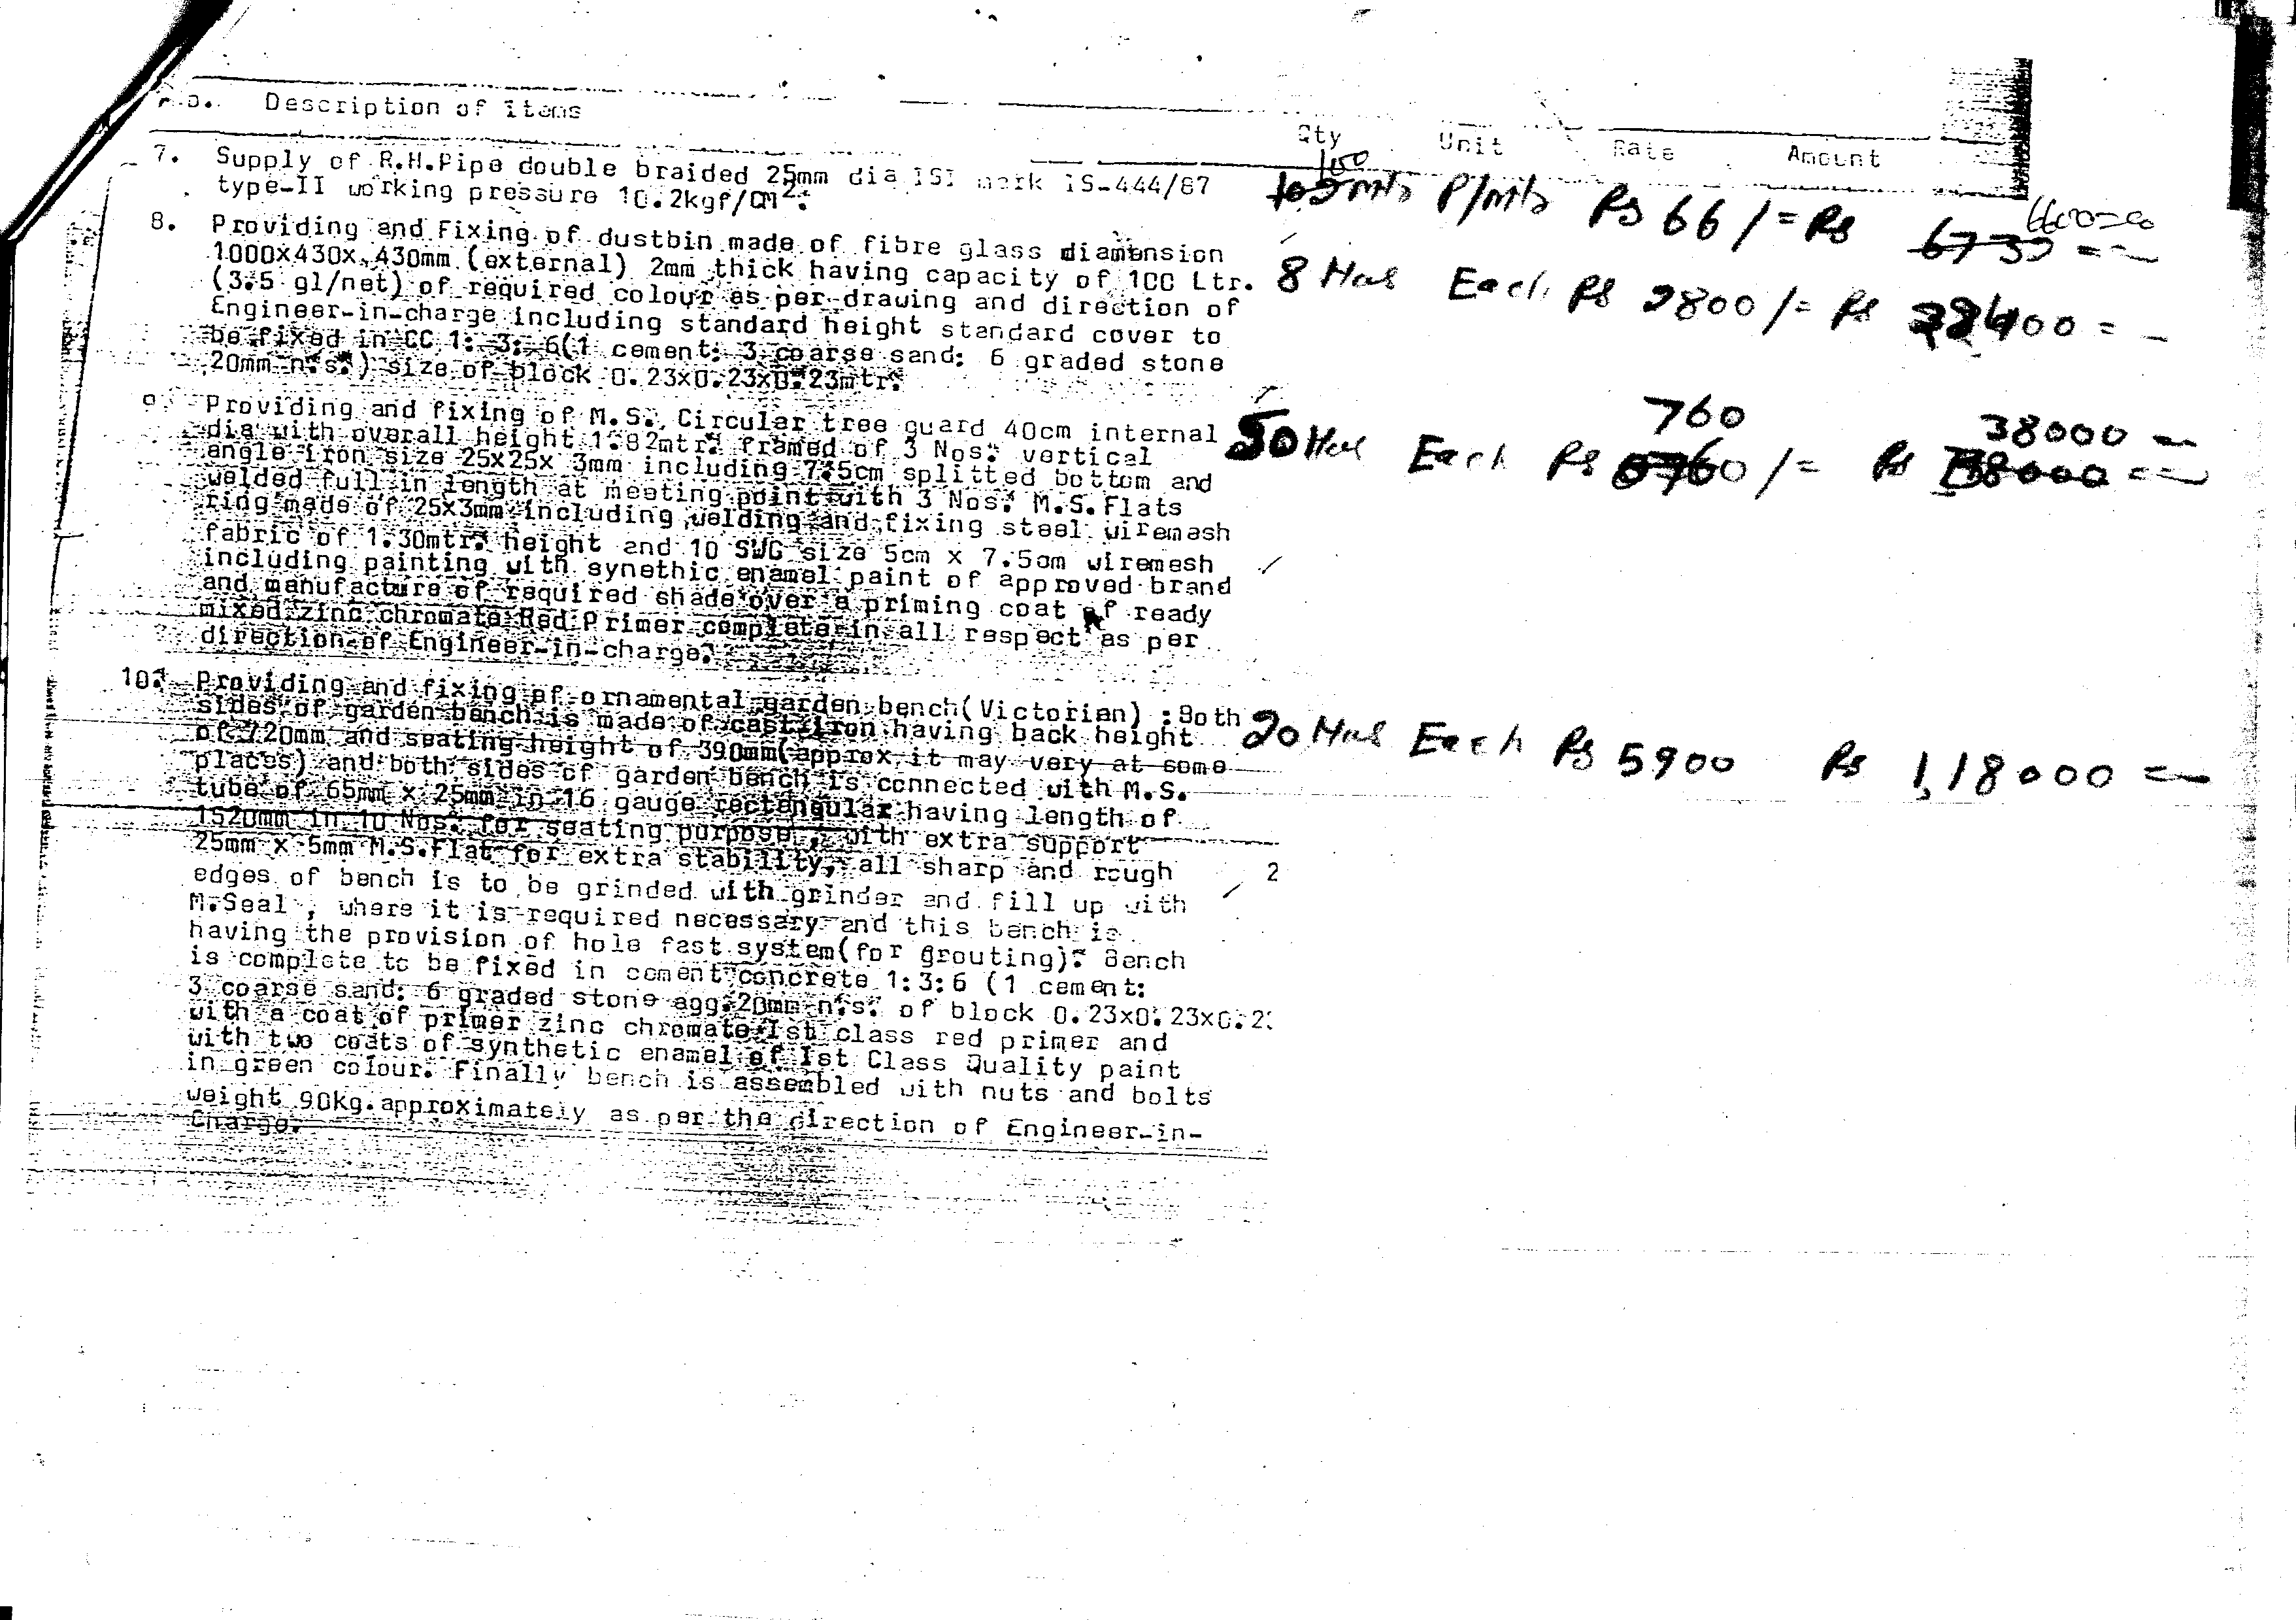 Description of Items Qty Unit Rate Amount
7. Supply of R.H.Pipe double braided 25mm dia ISI mark IS-444/87
type-II working pressure 10.2kgf/CM2.
100 mts P/mts Rs 66/= Rs 6600=00
8. Providing and Fixing of dustbin made of fibre glass diamension
1000x430x 430mm (external) 2mm thick having capacity of 100 Ltr.
(3.5 gl/net) of required colour as per drawing and direction of
Engineer-in-charge including standard height standard cover to
be fixed in CC 1: 3: 6(1 cement: 3 coarse sand: 6 graded stone
20mm n.s.) size of block 0.23x0.23x0.23mtr.
8 Nos Each Rs 2800/= Rs 22400=
9. Providing and fixing of M.S. Circular tree guard 40cm internal
dia with overall height 1.82mtr. framed of 3 Nos. vertical
angle iron size 25x25x 3mm including 7.5cm splitted bottom and
welded full in length at meeting point with 3 Nos. M.S.Flats
ring made of 25x3mm including welding and fixing steel wiremesh
fabric of 1.30mtr. height and 10 SWG size 5cm x 7.5cm wiremesh
including painting with synethic enamel paint of approved brand
and manufacture of required shade over a priming coat of ready
mixed zinc chromate Red Primer complete in all respect as per
direction of Engineer-in-charge.
760 38000
50 Nos Each Rs /= Rs 38000
10. Providing and fixing of ornamental garden bench(Victorian) :Both
sides of garden bench is made of cast iron having back height
of 720mm and seating height of 390mm(approx, it may very at some
places) and both sides of garden bench is connected with M.S.
tube of 65mm x 25mm in 16 gauge rectengular having length of
1520mm in 10 Nos. for seating purpose , with extra support
25mm x 5mm M.S.Flat for extra stability, all sharp and rough
edges of bench is to be grinded with grinder and fill up with
M.Seal , where it is required necessary and this bench is
having the provision of hole fast system(for grouting). Bench
is complete to be fixed in cement concrete 1:3:6 (1 cement:
3 coarse sand: 6 graded stone agg.20mm n.s. of block 0.23x0.23x0.2
with a coat of primer zinc chromate Ist class red primer and
with two coats of synthetic enamel of Ist Class Quality paint
in green colour. Finally bench is assembled with nuts and bolts
weight 90kg.approximately as per the direction of Engineer-in-
Charge.
20 Nos Each Rs 5900 Rs 1,18000
2